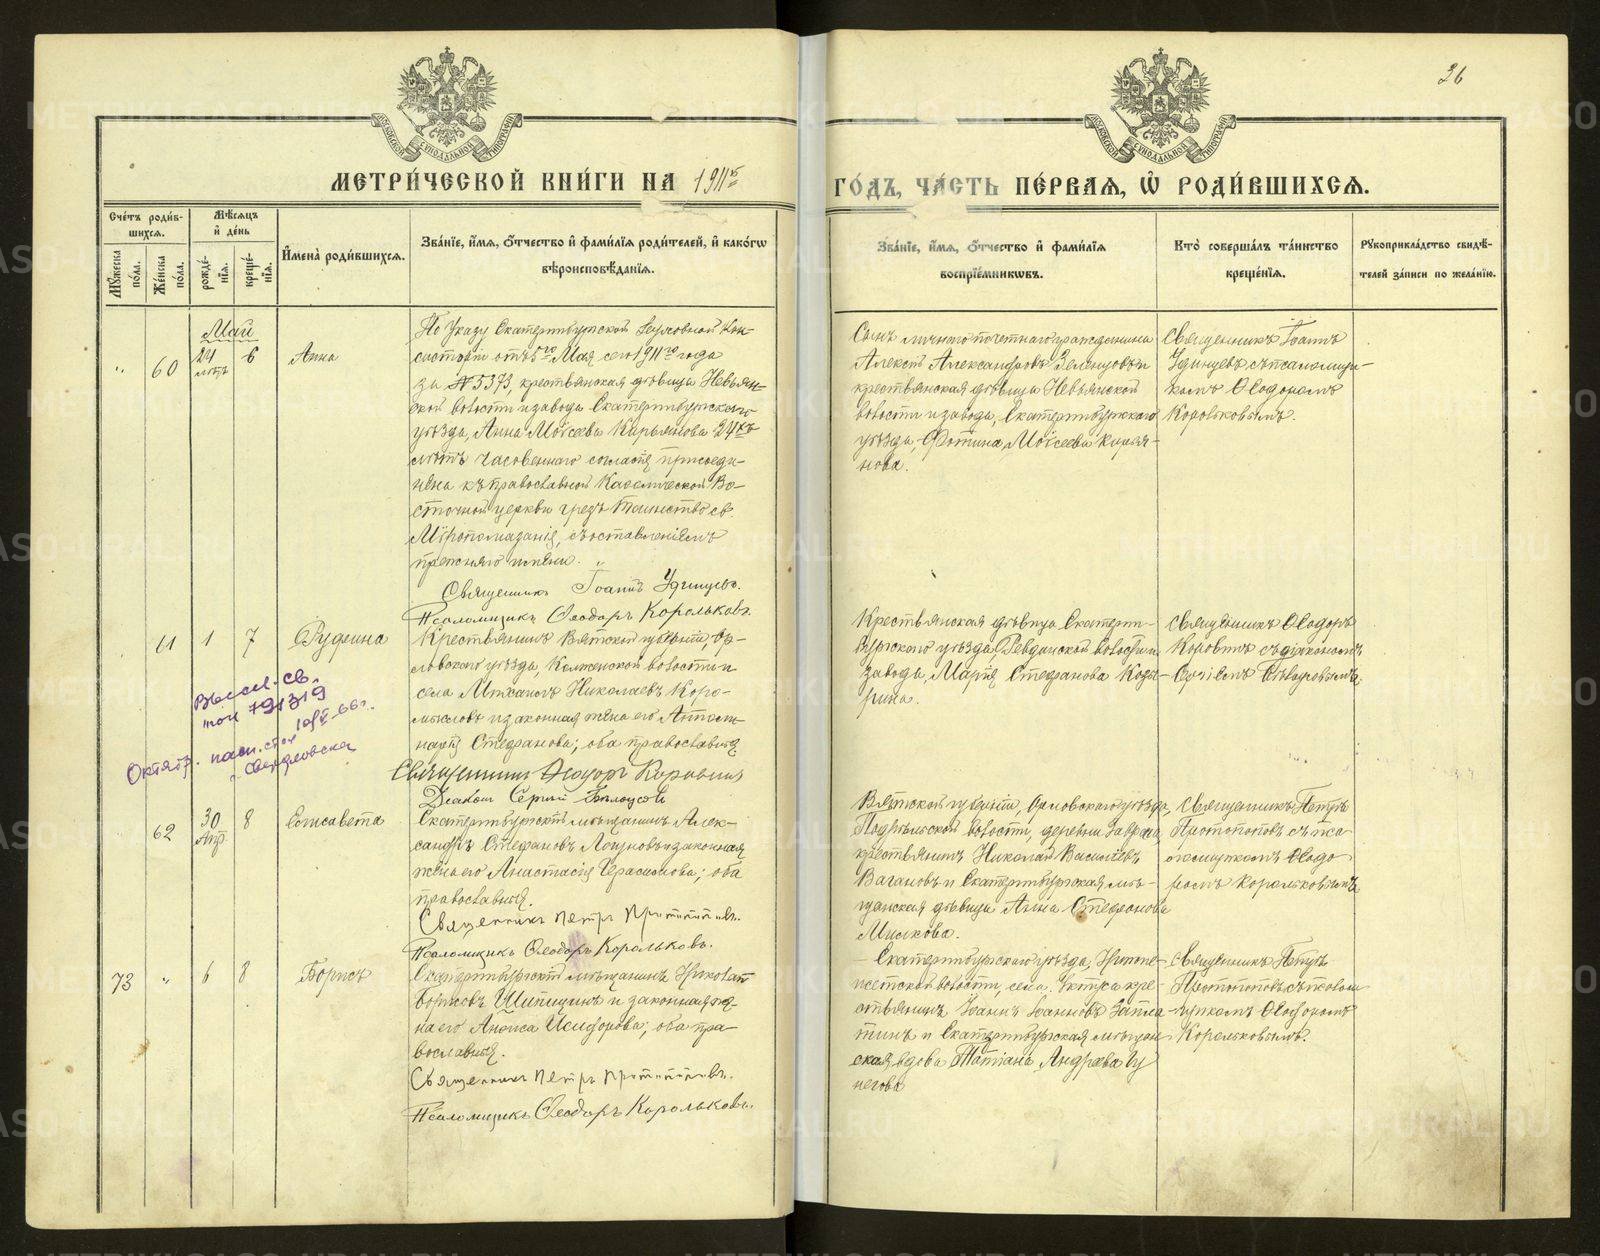 36
МЕТРИ́ЧЕСКОЙ КНИ́ГИ НА 1911й
ГО́ДЪ, ЧА́СТЬ ПЕ́РВАЯ, Ѡ҆ РОДИ́ВШИХСЯ.
Сче́тъ роди́в-
шихся.
Мѣ́сяцъ
и҆ де́нь
И҆мена̀ роди́вшихся.
Зва́нїе, и҆́мя, ѻ҆́тчество и҆ фами́лїя роди́телей, и҆ како́гѡ
вѣроисповѣ́данїя.
Мꙋ́жеска по́ла.
Же́нска по́ла.
рожде́нїя.
креще́нїя.
Зва́нїе, и҆́мя, ѻ҆́тчество и҆ фами́лїя
воспрїе́мникѡвъ.
Кто̀ соверша́лъ та́инство
креще́нїя.
Рꙋкоприкла́дство свидѣ́-
телей за́писи по жела́нїю.
Май
„ 60 24 лѣтъ 6 Анна
По Указу Екатеринбургской Духовной Кон-
систоріи отъ 5го Мая сего 1911го года
за № 5373, крестьянская дѣвица Невьян-
ской волости и завода Екатеринбургскаго
уѣзда, Анна Моісеева Кирьянова 24хъ
лѣтъ часовеннаго согласія присоеди-
нена къ православной Каѳолической Во-
сточной церкви чрезъ Таинство св.
Мѵропомазанія, съ оставленіемъ
прежняго имени.
Священникъ Іоаннъ Удинцевъ.
Псаломщикъ Ѳеодоръ Корольковъ.
Сынъ личнаго почетнаго гражданина
Алексѣй Александровъ Зеленцовъ и
крестьянская дѣвица Невьянской
волости и завода, Екатеринбургскаго
уѣзда, Фотина Моісеева Кирья-
нова.
Священникъ Іоаннъ
Удинцевъ съ псаломщи-
комъ Ѳеодоромъ
Корольковымъ.
61 1 7 Руфина
Крестьянинъ Вятской губерніи, Ор-
ловскаго уѣзда, волости и
села Михаилъ Николаевъ Коро-
мысловъ и законная жена его Аполли-
нарія Стефанова; оба православные.
Священникъ Ѳеодоръ Коровинъ
Діаконъ Сергій Бѣлоусовъ
Крестьянская дѣвица Екатерин-
бургскаго уѣзда, Ревдинской волости и
завода, Марія Стефанова Козы-
рина.
Священникъ Ѳеодоръ
Коровинъ съ діакономъ
Сергіемъ Бѣлоусовымъ.
Высл. св.
791319
10/V-66 г.
Октябр. пасп. стол
г. Свердловска
62 30 Апр. 8 Елисавета
Екатеринбургскій мѣщанинъ Алек-
сандръ Стефановъ Логуновъ и законная
жена его Анастасія Герасимова; оба
православные.
Священникъ Петръ Протопоповъ.
Псаломщикъ Ѳеодоръ Корольковъ.
Вятской губерніи, Орловскаго уѣзда,
волости, деревни
крестьянинъ Николай Васильевъ
Вагановъ и Екатеринбургская мѣ-
щанская дѣвица Анна Стефанова
Милкова.
Священникъ Петръ
Протопоповъ съ пса-
ломщикомъ Ѳеодо-
ромъ Корольковымъ.
73 „ 6 8 Борисъ
Екатеринбургскій мѣщанинъ Николай
Борисовъ Шипицинъ и законная же-
на его Анфиса Исидорова; оба пра-
вославные.
Священникъ Петръ Протопоповъ.
Псаломщикъ Ѳеодоръ Корольковъ.
Екатеринбургскаго уѣзда, Нижне-
исетской волости, села Уктуса кре-
стьянинъ Іоаннъ Іоанновъ Запла-
тинъ и Екатеринбургская мѣщан-
ская вдова Татіана Андреева Бу
негова
Священникъ Петръ
Протопоповъ съ псалом-
щикомъ Ѳеодоромъ
Корольковымъ.
METRIKI.GASO-URAL.RU